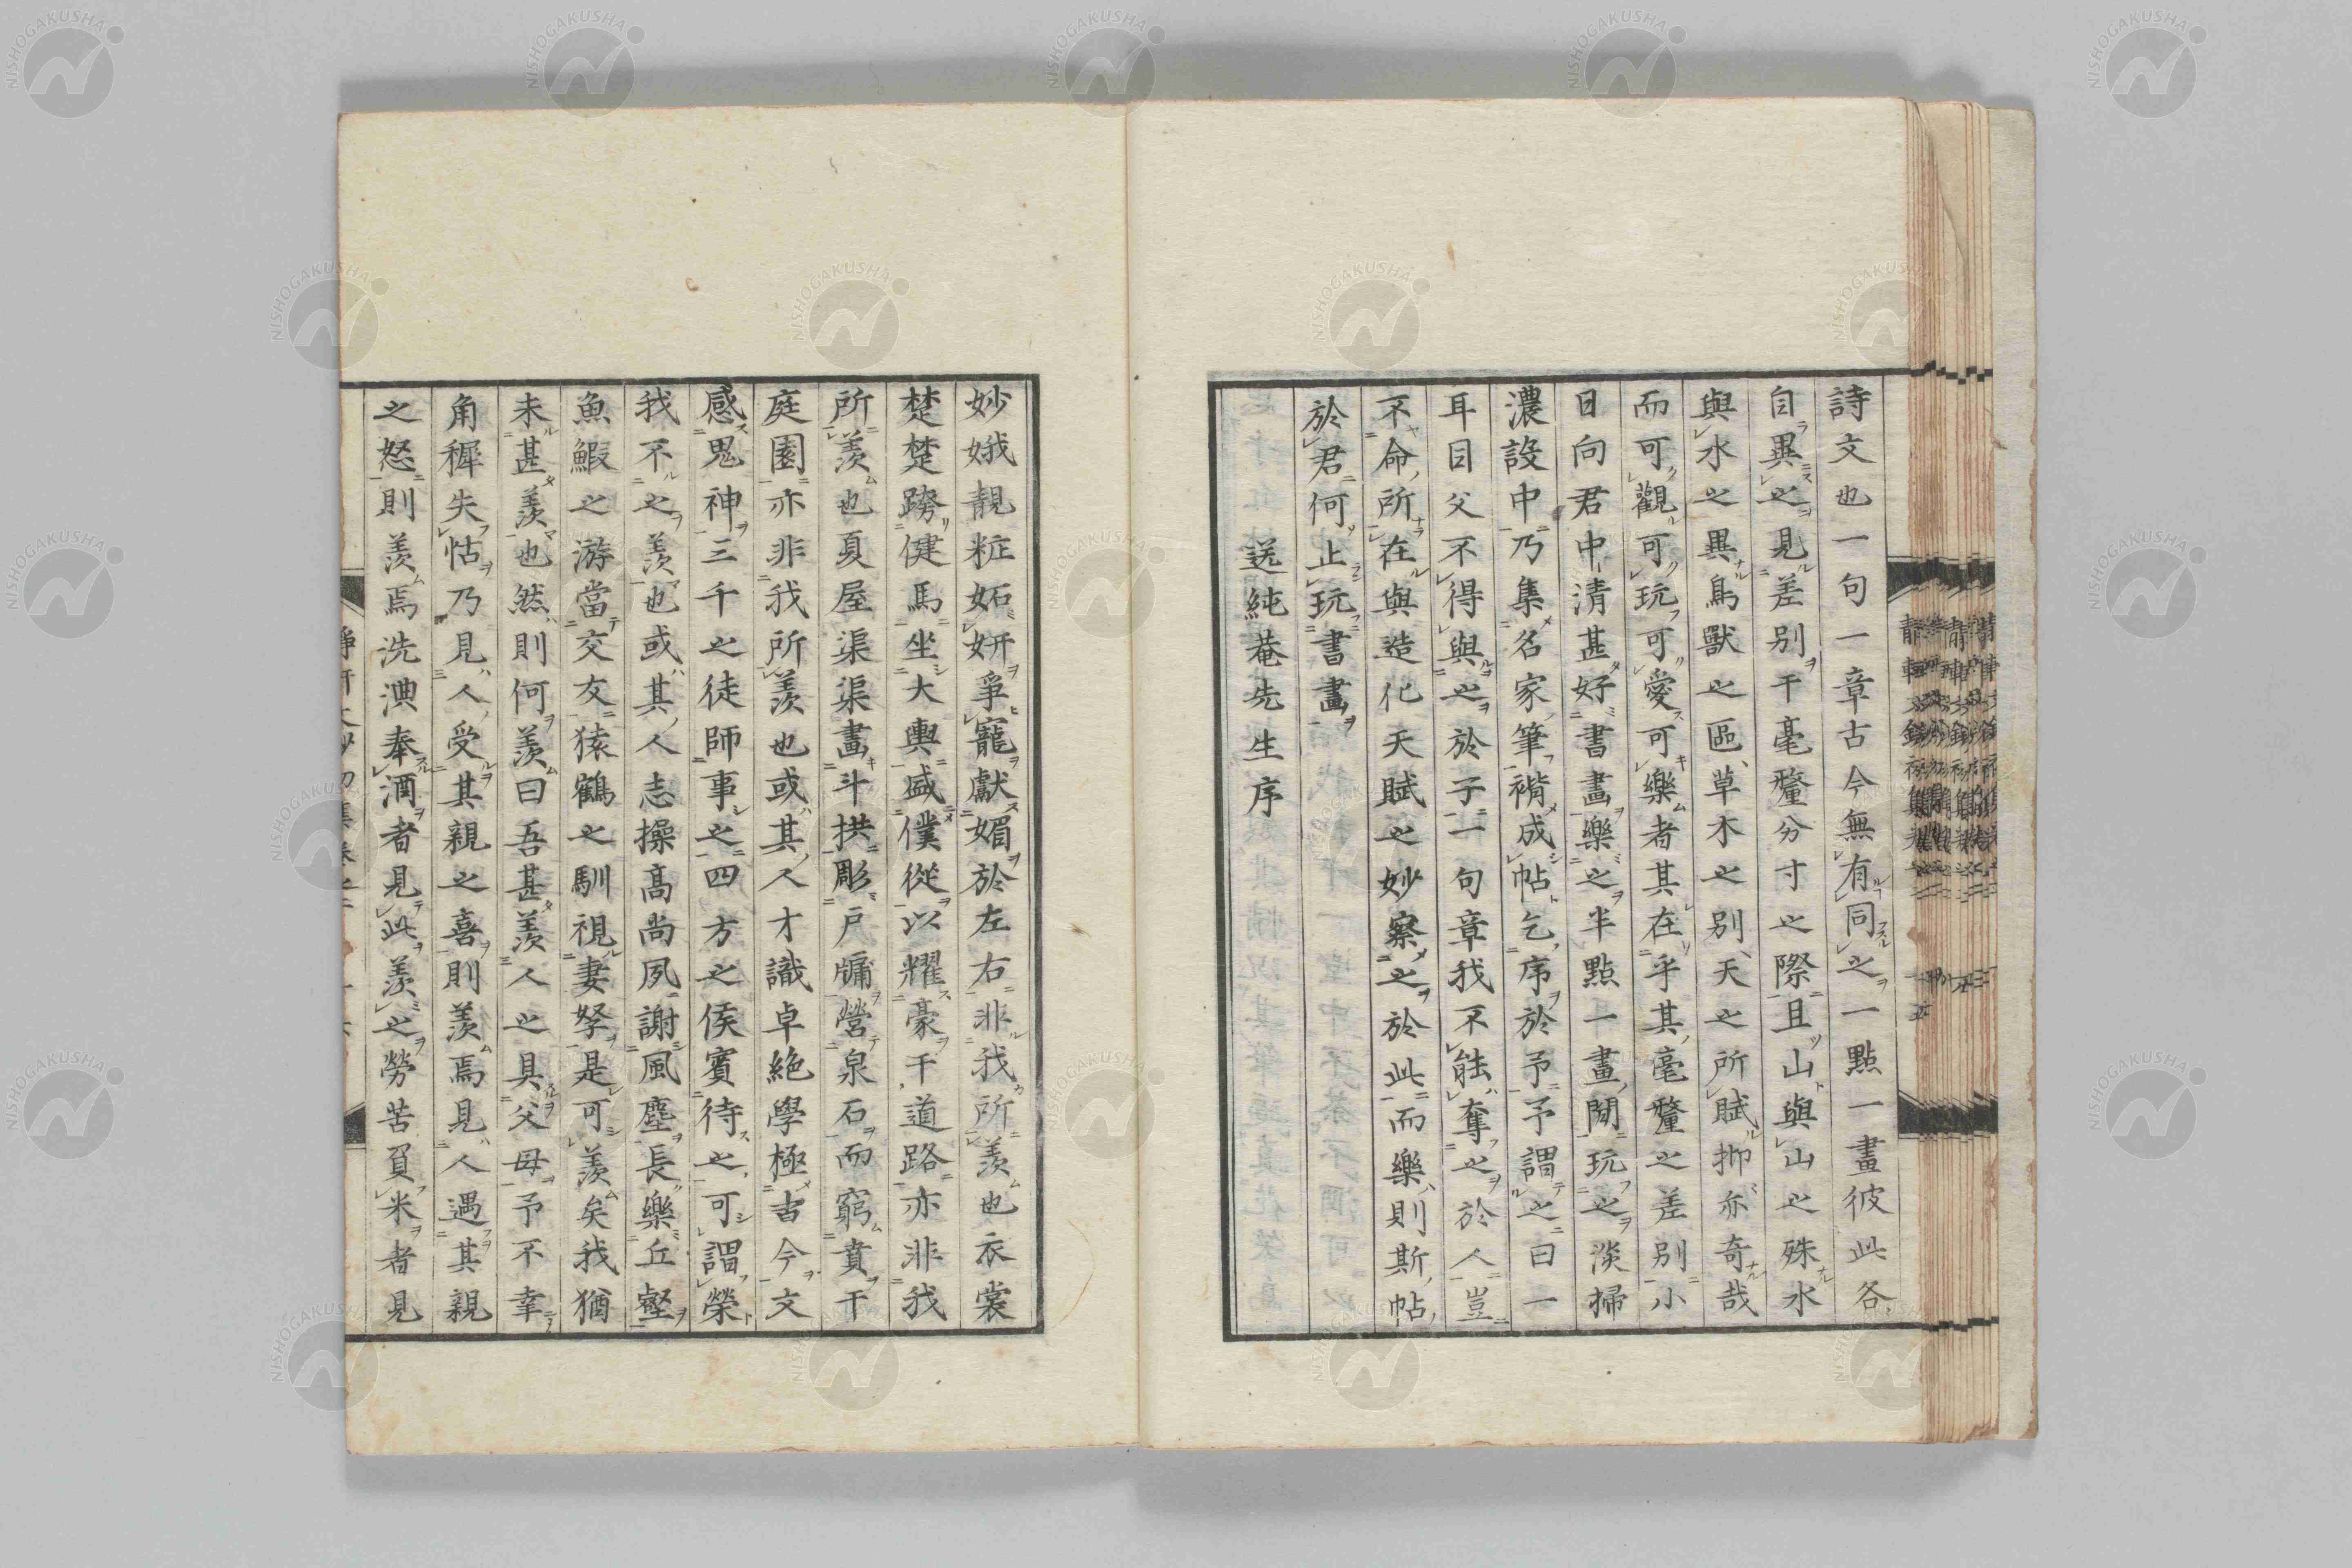 詩文也一句一章古今無有同之一點一畫彼此各
自異之見差別于毫釐分寸之際且山與山之殊水
與水之異鳥獸之區草木之別天之所賦抑亦奇哉
而可觀可玩可愛可樂者其在乎其毫釐之差別小
日向君中清甚好書畫樂之半點一畫閒玩之淡掃
濃設中乃集名家筆褙成帖乞序於予予謂之曰一
耳目父不得與之於子一句章我不能奪之於人豈
不命所在與造化天賦之妙察之於此而樂則斯帖
於君何止玩書畫
送純菴先生序
妙娥靚粧妬妍爭寵獻媚於左右非我所羨也衣裳
楚楚跨健馬坐大輿盛僕從以耀豪于道路亦非我
所羨也夏屋渠渠畫斗拱彫戶牖營泉石而窮賁于
庭園亦非我所羨也或其人才識卓絶學極古今文
感鬼神三千之徒師事之四方之侯賓待之可謂榮
我不之羨也或其人志操高尚夙謝風塵長樂丘壑
魚鰕之游當交友猿鶴之馴視妻孥是可羨矣我猶
未甚羨也然則何羨曰吾甚羨人之具父母予不幸
角穉失怙乃見人受其親之喜則羨焉見人遇其親
之怒則羨焉洗腆奉酒者見此羨之勞苦負米者見
NISHOGAKUSHA